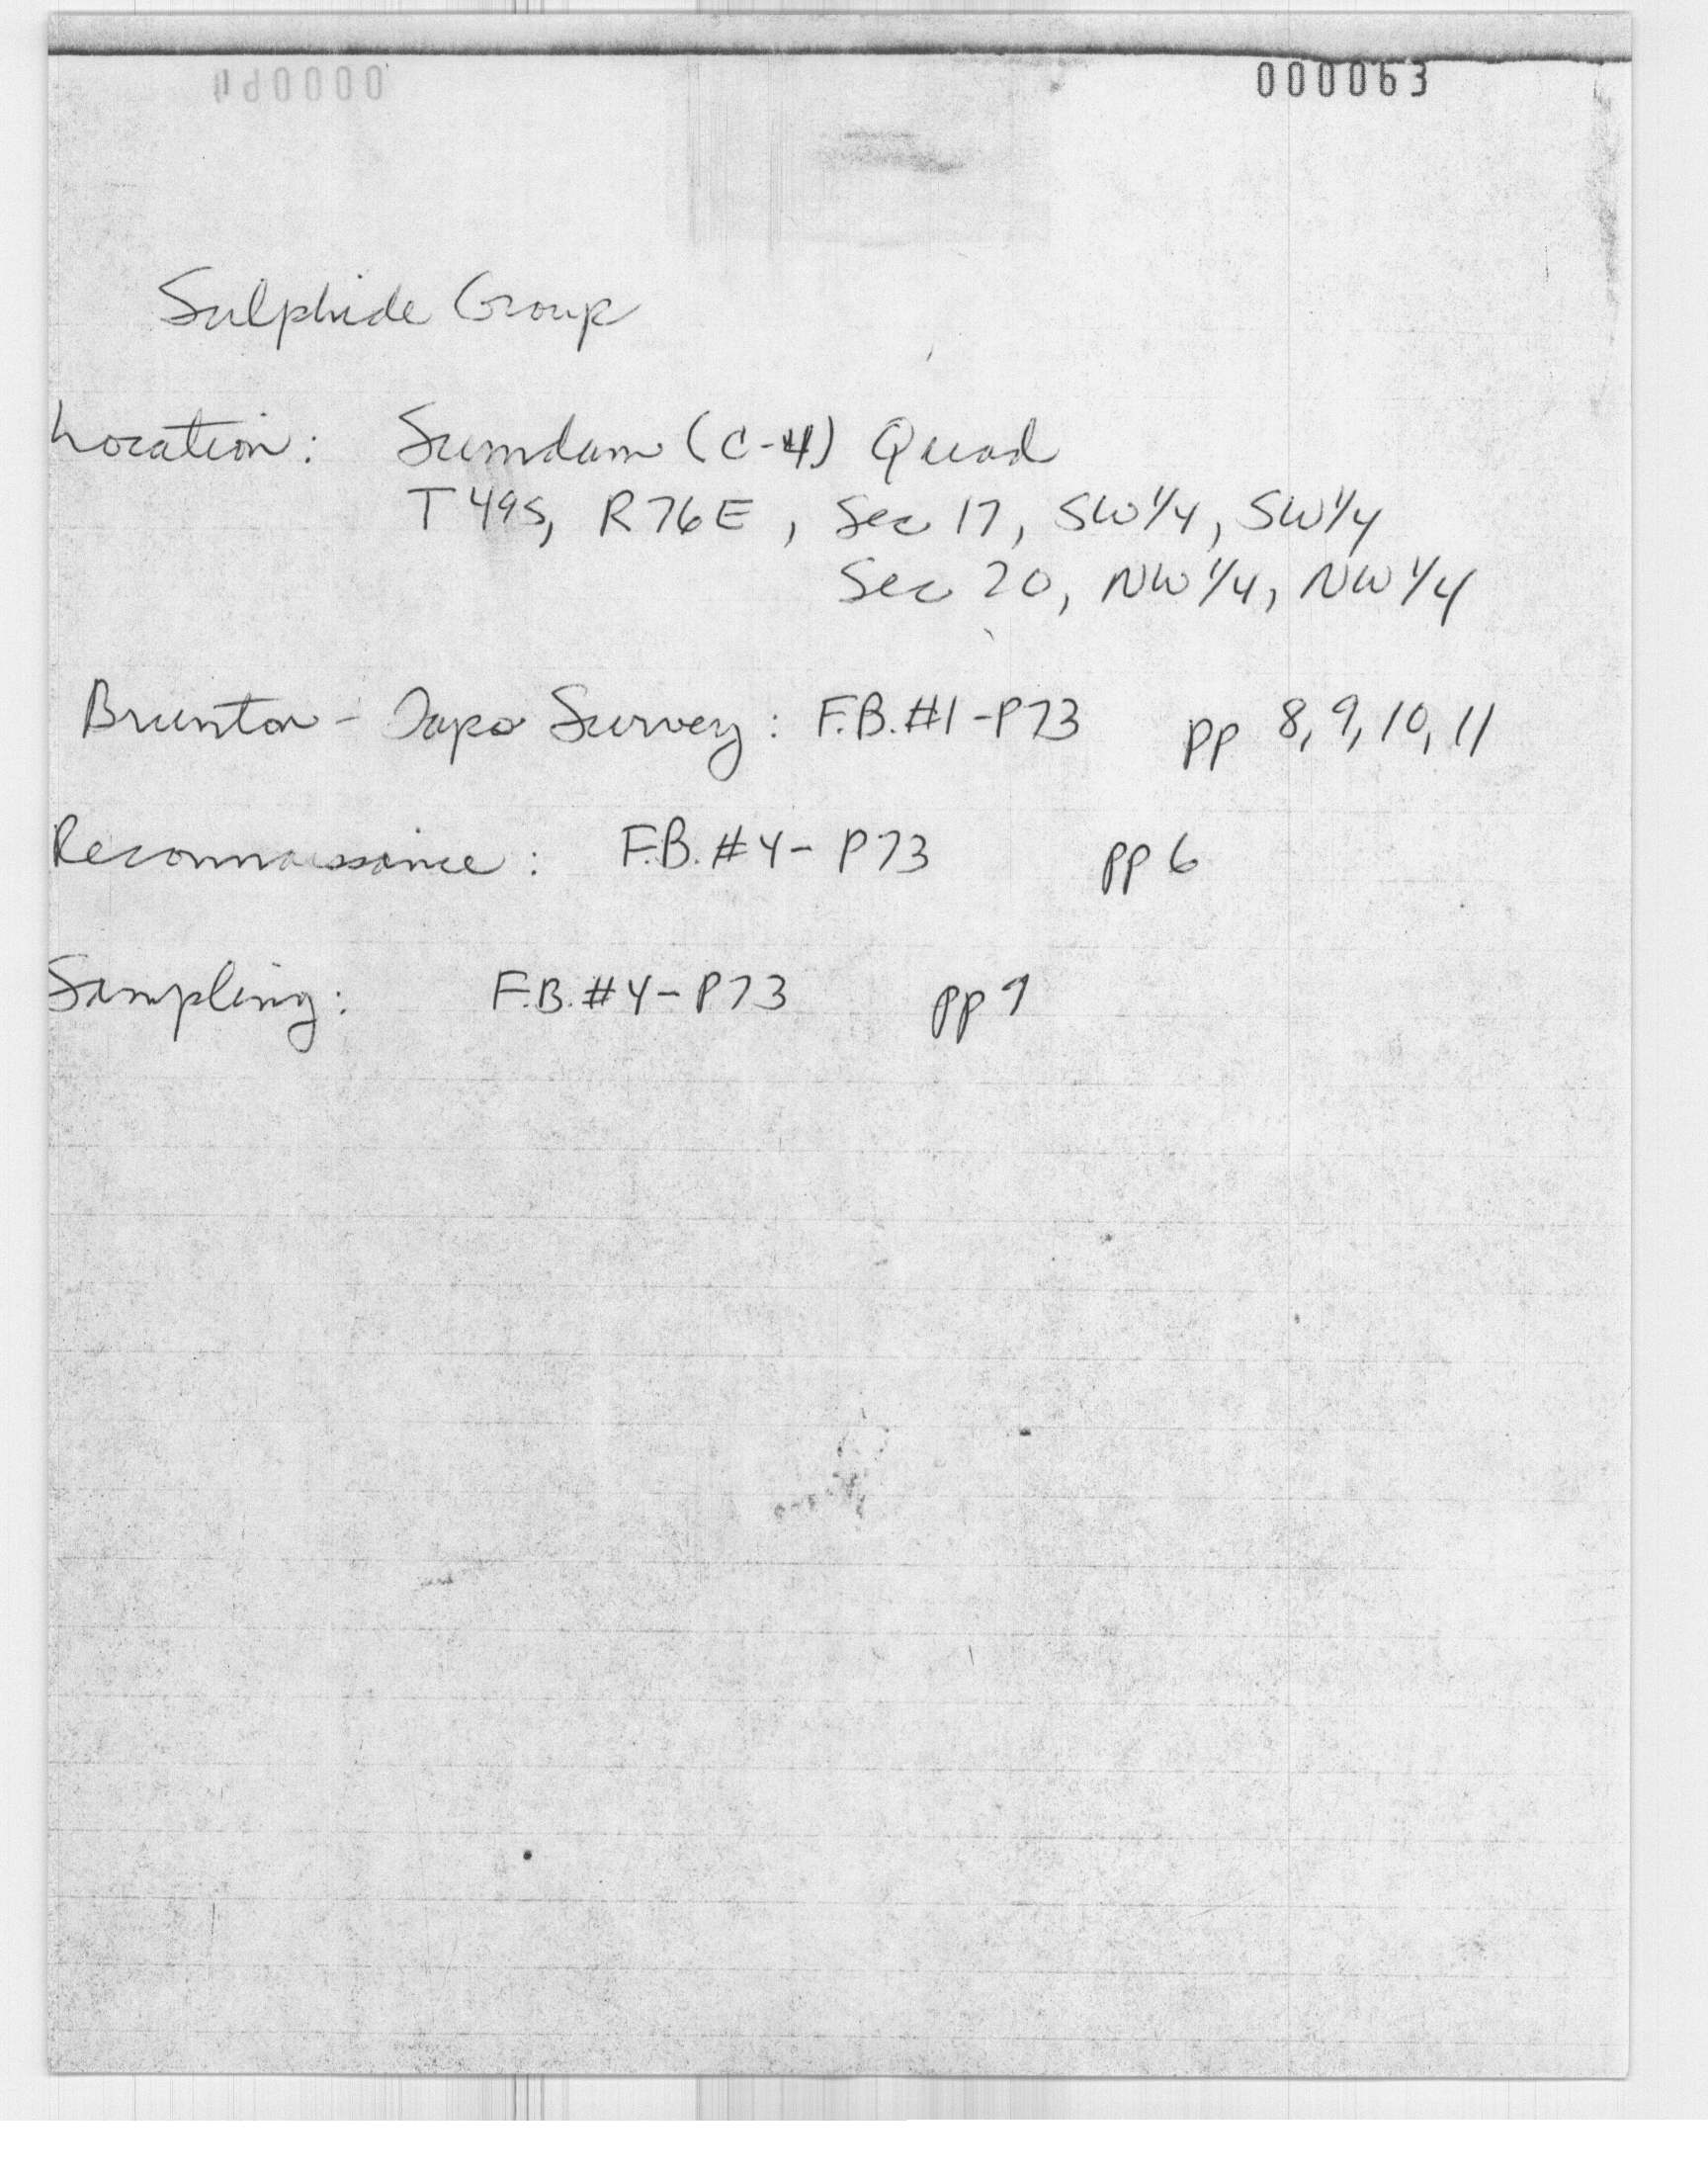 000063
Sulphide Group
Location: Sumdum (C-4) Quad
T49S, R76E, Sec 17, SW 1/4, SW 1/4
Sec 20, NW 1/4, NW 1/4
Brunton - Tape Survey: F.B. #1-P73 pp 8, 9, 10, 11
Reconnaissance: F.B. #4 - P73 pp 6
Sampling: F.B. #4 - P73 pp